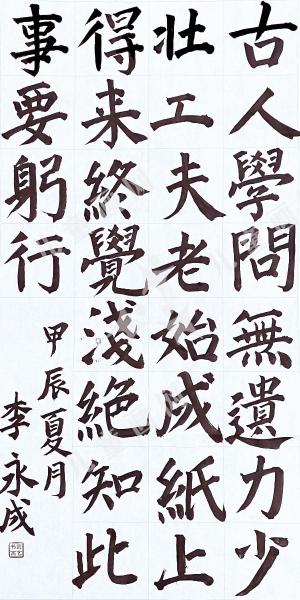 古人學問無遺力少
壯工夫老始成紙上
得来終覺淺絕知此
事要躬行
甲辰夏月
李永成